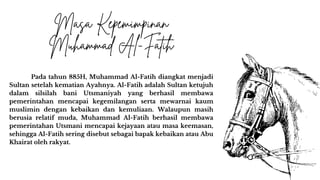 Masa Kepemimpinan
Muhammad Al-Fatih
Pada tahun 885H, Muhammad Al-Fatih diangkat menjadi
Sultan setelah kematian Ayahnya. Al-Fatih adalah Sultan ketujuh
dalam silsilah bani Utsmaniyah yang berhasil membawa
pemerintahan mencapai kegemilangan serta mewarnai kaum
muslimin dengan kebaikan dan kemuliaan. Walaupun masih
berusia relatif muda, Muhammad Al-Fatih berhasil membawa
pemerintahan Utsmani mencapai kejayaan atau masa keemasan,
sehingga Al-Fatih sering disebut sebagai bapak kebaikan atau Abu
Khairat oleh rakyat.